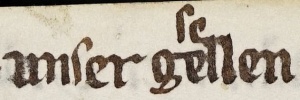 unser gesellen